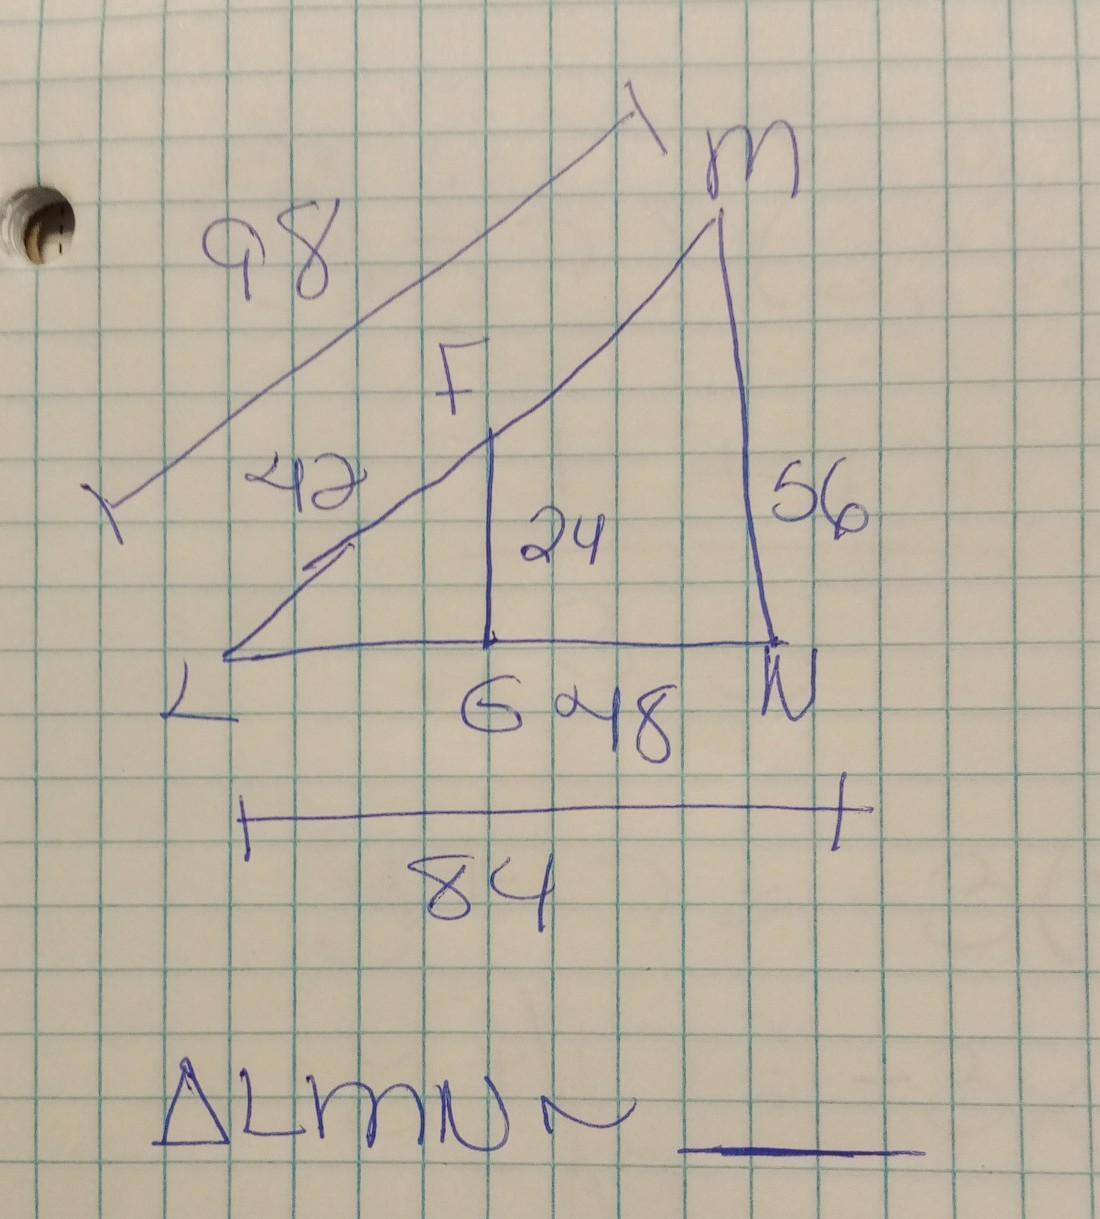 M
98
F
42
24
56
L
G 48 N
84
△LMN ~ ____